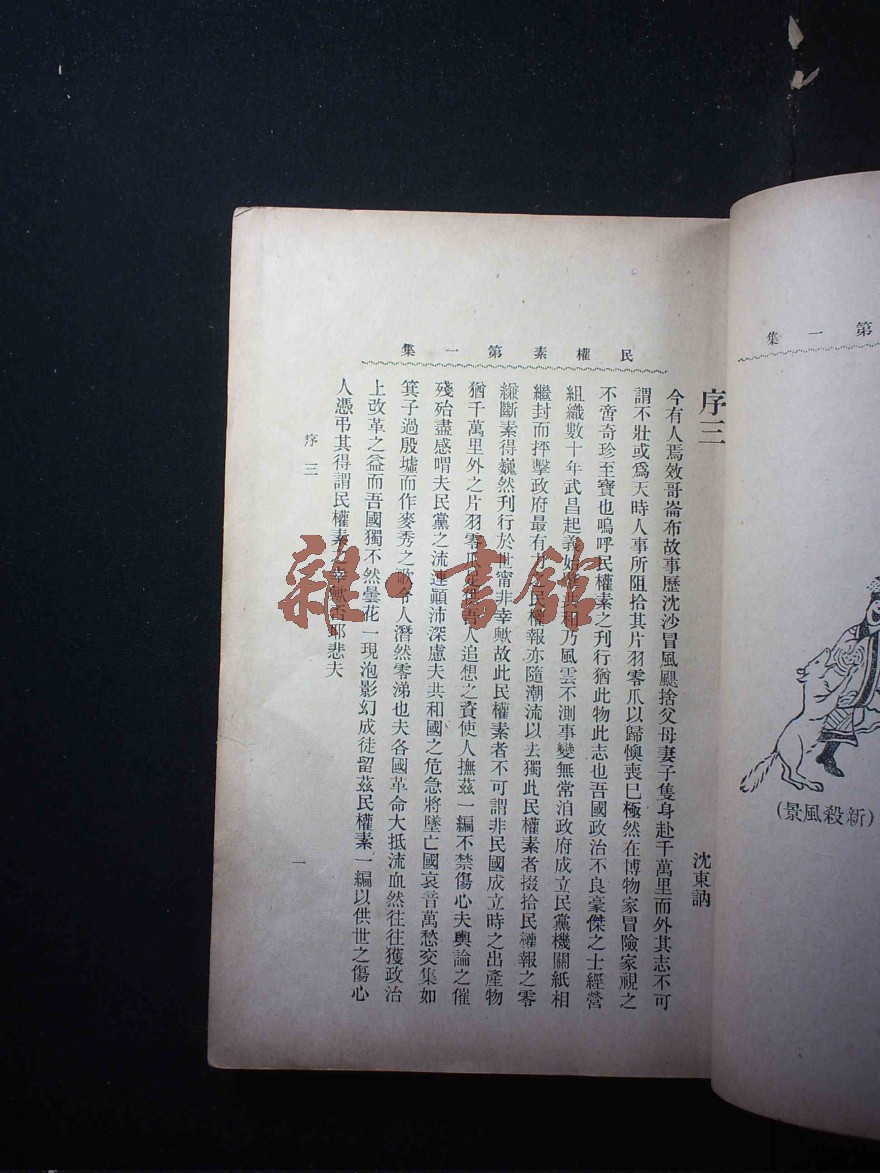 第一集
(新殺風景)
民權素第一集
序三
沈東訥
今有人焉效哥崙布故事歷沈沙冒風颶捨父母妻子隻身赴千萬里而外其志不可
謂不壯或爲天時人事所阻拾其片羽零爪以歸懊喪已極然在博物家冒險家視之
不啻奇珍至寶也嗚呼民權素之刊行猶此物此志也吾國政治不良豪傑之士經營
組織數十年武昌起義始肇共和乃風雲不測事變無常洎政府成立民黨機關紙相
繼封而抨擊政府最有力之民權報亦隨潮流以去獨此民權素者掇拾民權報之零
縑斷素得巍然刊行於世甯非幸歟故此民權素者不可謂非民國成立時之出產物
猶千萬里外之片羽零爪足供吾人追想之資使人撫茲一編不禁傷心夫輿論之催
殘殆盡感喟夫民黨之流連顚沛深慮夫共和國之危急將墜亡國哀音萬愁交集如
箕子過殷墟而作麥秀之歌令人潸然零涕也夫各國革命大抵流血然往往獲政治
上改革之益而吾國獨不然曇花一現泡影幻成徒留茲民權素一編以供世之傷心
人憑弔其得謂民權素之幸歟否耶悲夫
序三
一
雜·書館